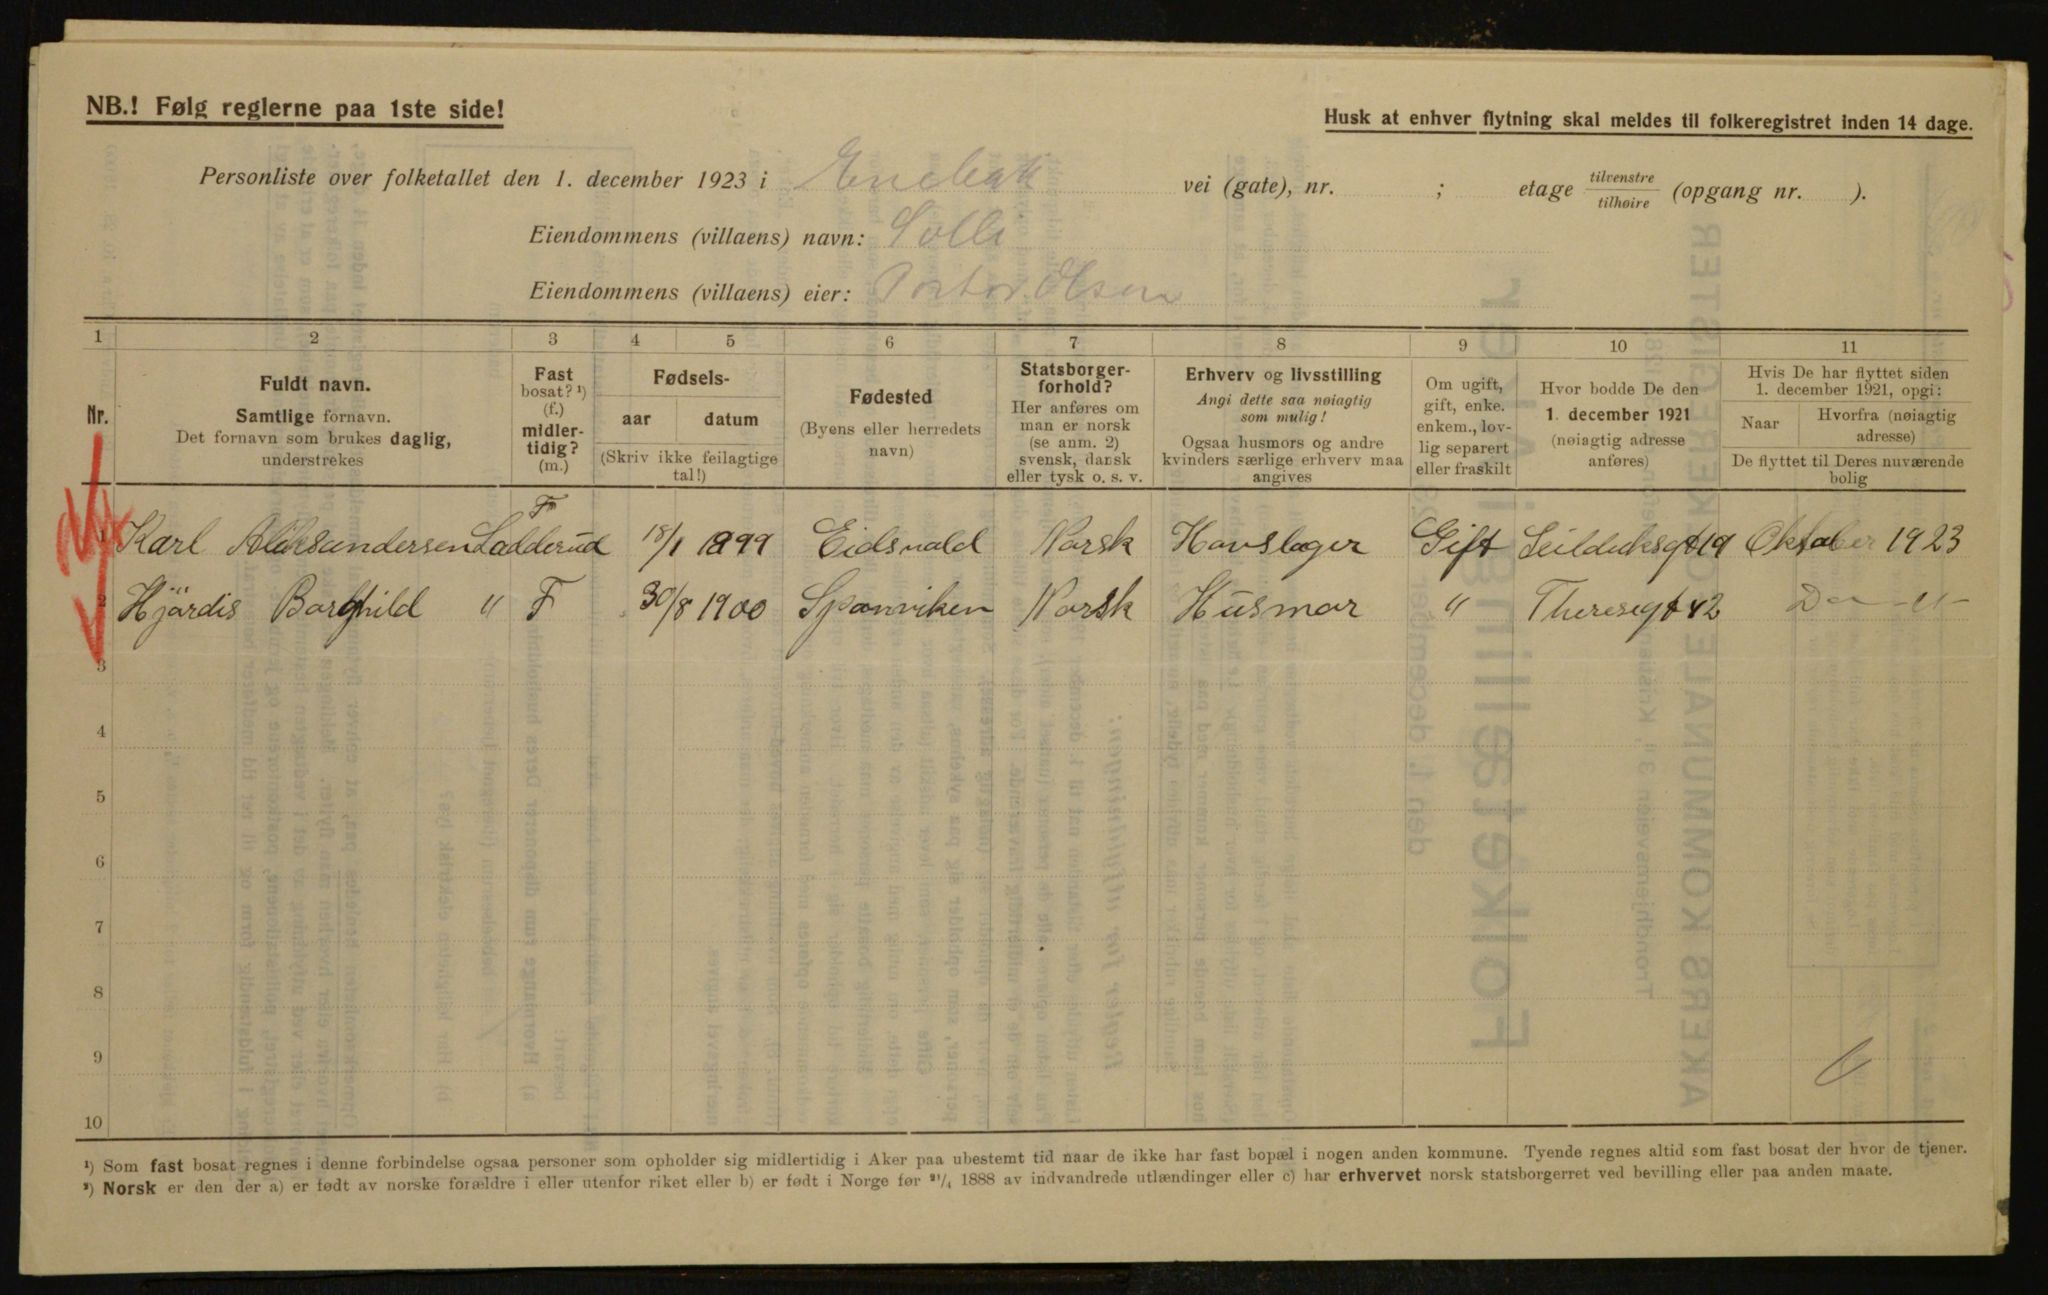 NB.! Følg reglerne paa 1ste side!
Husk at enhver flytning skal meldes til folkeregistret inden 14 dage.
Personliste over folketallet den 1. december 1923 i Enebak vei (gate), nr. ; etage tilvenstre / tilhøire (opgang nr. ).
Eiendommens (villaens) navn: Solli
Eiendommens (villaens) eier: Pastor Olsen
1 2 3 4 5 6 7 8 9 10 11
Nr.
Fuldt navn.
Samtlige fornavn.
Det fornavn som brukes daglig,
understrekes
Fast
bosat? ¹)
(f.)
midler-
tidig?
(m.)
Fødsels-
aar datum
(Skriv ikke feilagtige
tal!)
Fødested
(Byens eller herredets
navn)
Statsborger-
forhold?
Her anføres om
man er norsk
(se anm. 2)
svensk, dansk
eller tysk o. s. v.
Erhverv og livsstilling
Angi dette saa nøiagtig
som mulig!
Ogsaa husmors og andre
kvinders særlige erhverv maa
angives
Om ugift,
gift, enke.
enkem., lov-
lig separert
eller fraskilt
Hvor bodde De den
1. december 1921
(nøiagtig adresse
anføres)
Hvis De har flyttet siden
1. december 1921, opgi:
Naar
Hvorfra (nøiagtig
adresse)
De flyttet til Deres nuværende
bolig
1 Karl Aleksandersen Ladderud F 18/1 1899 Eidsvold Norsk Hovslager Gift Seilduksgt 19 Oktober 1923
2 Hjördis Borghild " F 30/8 1900 Sponviken Norsk Husmor " Theresegt 42 Do — " —
3
4
5
6
7
8
9
10
¹) Som fast bosat regnes i denne forbindelse ogsaa personer som opholder sig midlertidig i Aker paa ubestemt tid naar de ikke har fast bopæl i nogen anden kommune. Tyende regnes altid som fast bosat der hvor de tjener.
²) Norsk er den der a) er født av norske forældre i eller utenfor riket eller b) er født i Norge før ²¹/₄ 1888 av indvandrede utlændinger eller c) har erhvervet norsk statsborgerret ved bevilling eller paa anden maate.